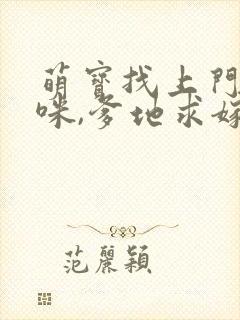 萌寶找上門
咪,爹地求嫁
范麗穎